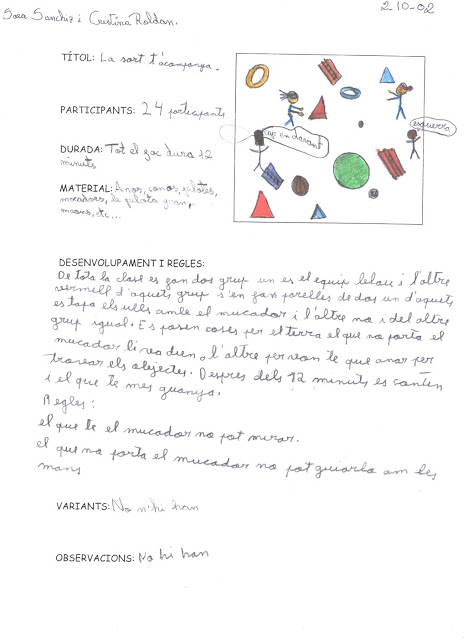 Sara Sanchiz i Cristina Roldan.
2 10-02
TÍTOL: La sort t'acompanya.
PARTICIPANTS: 24 participants
DURADA: Tot el joc dura 12
minuts
MATERIAL: Anos, conos, pilotes,
mocadors, la pilota gran,
etc...
en davant
esquerra
DESENVOLUPAMENT I REGLES:
De tota la clase es fan dos grup un es el equip blau i l'altre
vermell d'aquets grup s'en fan parelles de dos un d'aquets
es tapa els ulls amb el mucador i l'altre no i del altre
grup igual. Es posen coses per el terra el que no porta el
mucador li va dien a l'altre per on te que anar per
trovar els objectes. Despres dels 12 minuts es conten
i el que te mes guanya.
Regles:
el que te el mucador no pot mirar.
el que no porta el mucador no pot guiarla am les
mans
VARIANTS: No n'hi han
OBSERVACIONS: No hi han